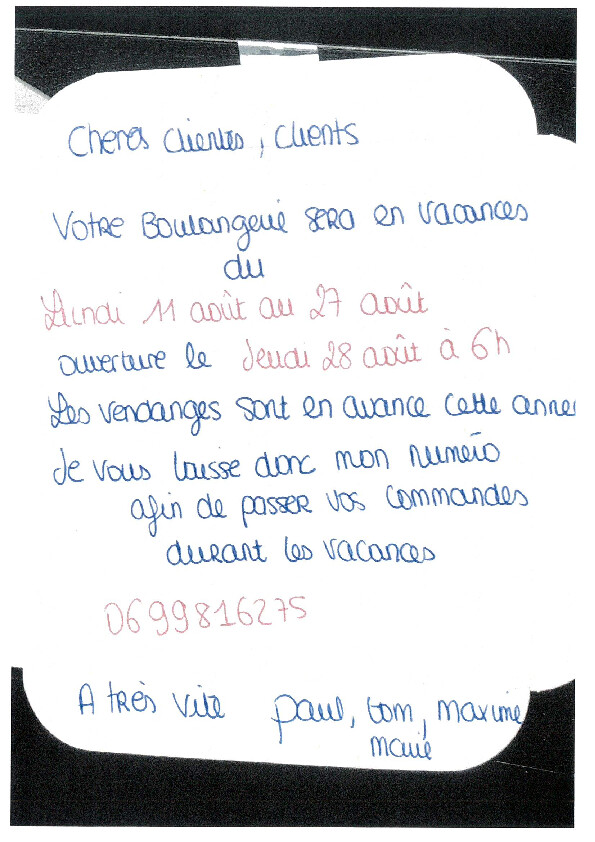 Cheres clientes, clients
Votre Boulangerie sera en vacances
du
Lundi 11 août au 27 août
ouverture le Jeudi 28 août à 6h
Les vendanges sont en avance cette annee
Je vous laisse donc mon numéro
afin de passer vos commandes
durant les vacances
0699816275
A très vite paul, tom, maxime
marie